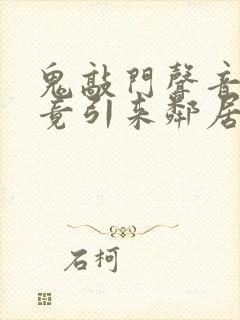 鬼敲門聲音
竟引來鄰居
石柯